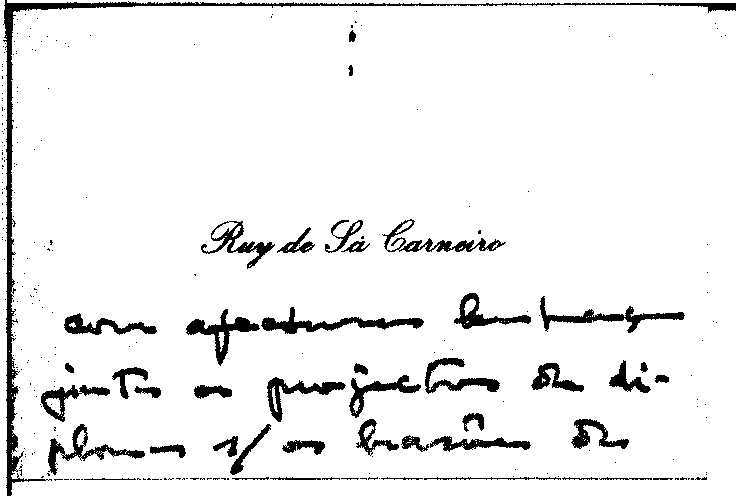 Ruy de Sá Carneiro
com afectuosos cumprimentos
junto os projectos de di-
plomas s/ os brasões de